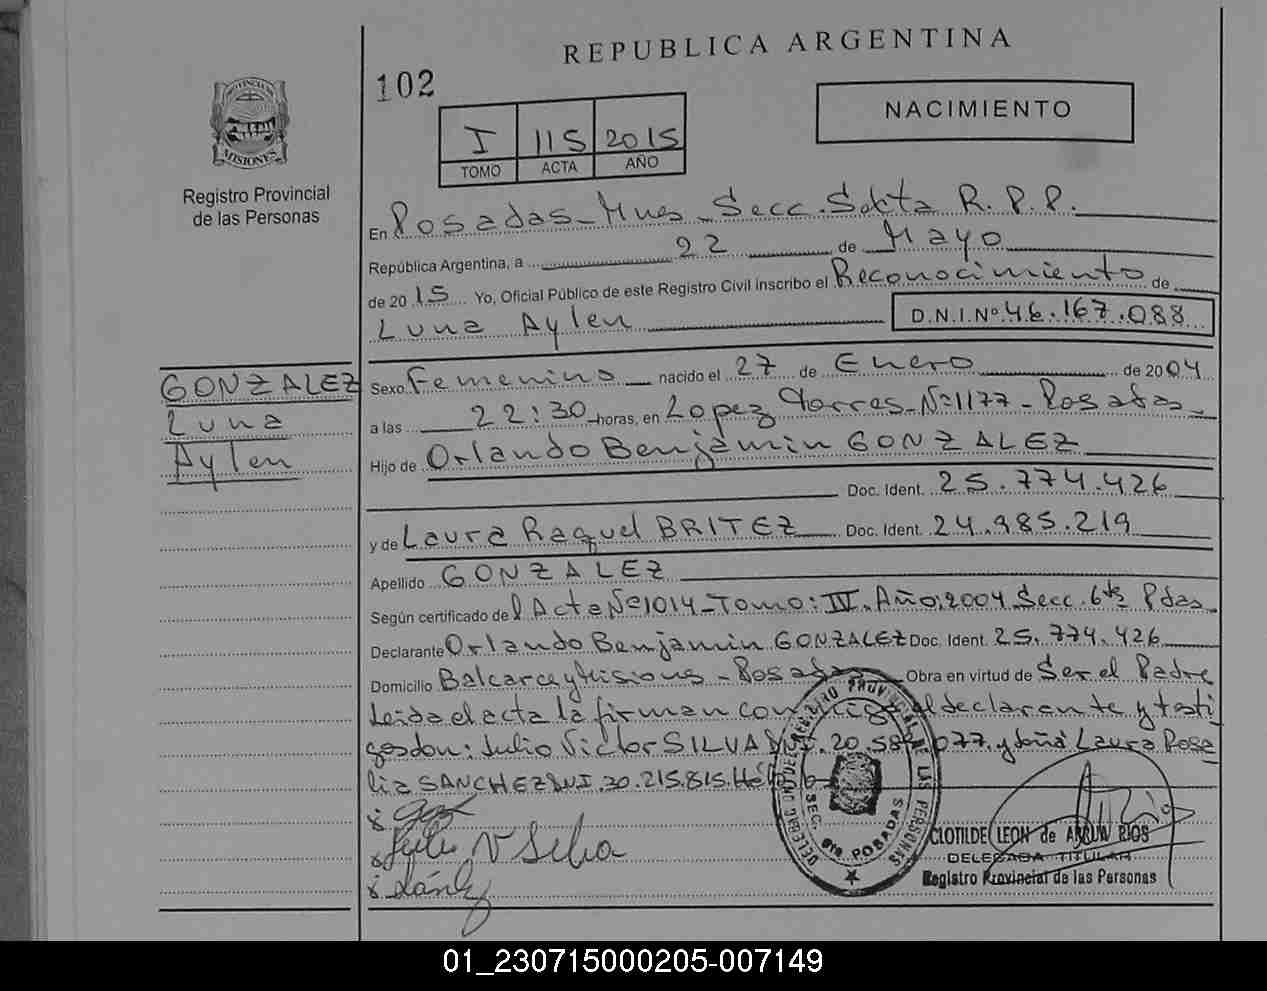 REPUBLICA ARGENTINA
102
NACIMIENTO
I 115 2015
TOMO ACTA AÑO
MISIONES
Registro Provincial
de las Personas
En Posadas-Mnes-Secc. Sexta R.P.P.
República Argentina, a 22 de Mayo
de 2015 Yo, Oficial Público de este Registro Civil inscribo el Reconocimiento de
Luna Aylen D.N.I.Nº 46.167.088
GONZALEZ
Luna
Aylen
Sexo Femenino nacido el 27 de Enero de 2004
a las 22:30 horas, en Lopez Torres-Nº1177-Posadas-
Hijo de Orlando Benjamin GONZALEZ
Doc. Ident. 25.774.426
y de Laura Raquel BRITEZ Doc. Ident. 24.985.219
Apellido GONZALEZ
Según certificado del Acta Nº1014-Tomo: IV. Año:2004 Secc. 6ta Pdas.
Declarante Orlando Benjamin GONZALEZ Doc. Ident. 25.774.426
Domicilio Balcarce y Misiones - Posadas Obra en virtud de Ser el Padre
Leida el acta la firman conmigo el declarante y testi-
gos don: Julio Victor SILVA 077 y doña Laura Rosa
lia SANCHEZ DNI.30.215.815.
Julio V Silva
DELEGACION DEL REGISTRO PROVINCIAL DE LAS PERSONAS
SEC. 6ta POSADAS
CLOTILDE LEON de ARRUA RIOS
DELEGADA TITULAR
Registro Provincial de las Personas
01_230715000205-007149